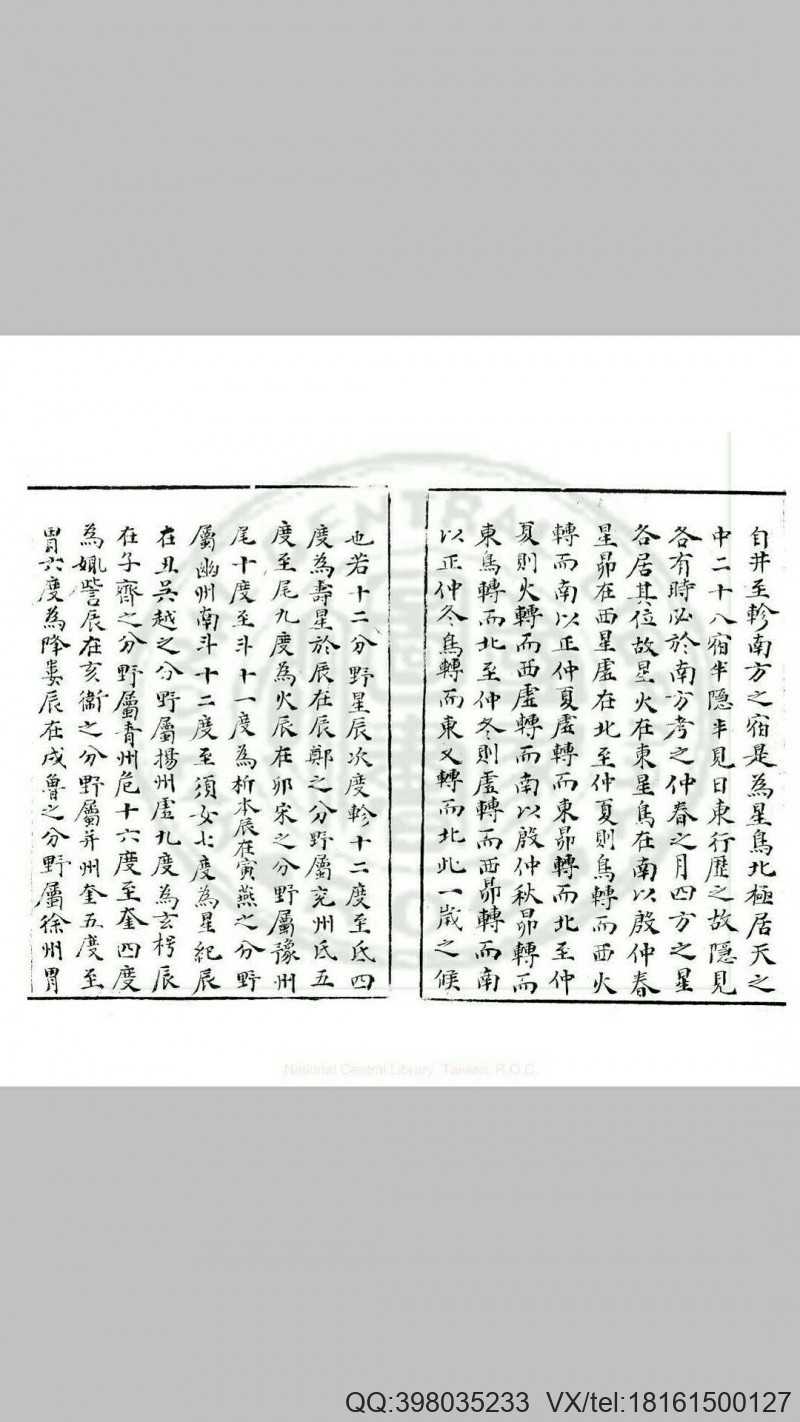 自井至軫南方之宿是為星鳥北極居天之
中二十八宿半隠半見日東行歴之故隠見
各有時必於南方考之仲春之月四方之星
各居其位故星火在東星鳥在南以殷仲春
星昴在西星虛在北至仲夏則鳥轉而西火
轉而南以正仲夏虛轉而東昴轉而北至仲
夏則火轉而西虛轉而南以殷仲秋昴轉而
東鳥轉而北至仲冬則虛轉而西昴轉而南
以正仲冬鳥轉而東又轉而北此一歲之候
也若十二分野星辰次度軫十二度至氐四
度為壽星於辰在辰鄭之分野屬兗州氐五
度至尾九度為火辰在卯宋之分野屬豫州
尾十度至斗十一度為析木辰在寅燕之分野
屬幽州南斗十二度至須女七度為星紀辰
在丑吳越之分野屬揚州虛九度為玄枵辰
在子齊之分野屬青州危十六度至奎四度
為娵訾辰在亥衞之分野屬并州奎五度至
胃六度為降婁辰在戌魯之分野屬徐州胃
National Central Library, Taiwan, R.O.C.
QQ:398035233 VX/tel:18161500127